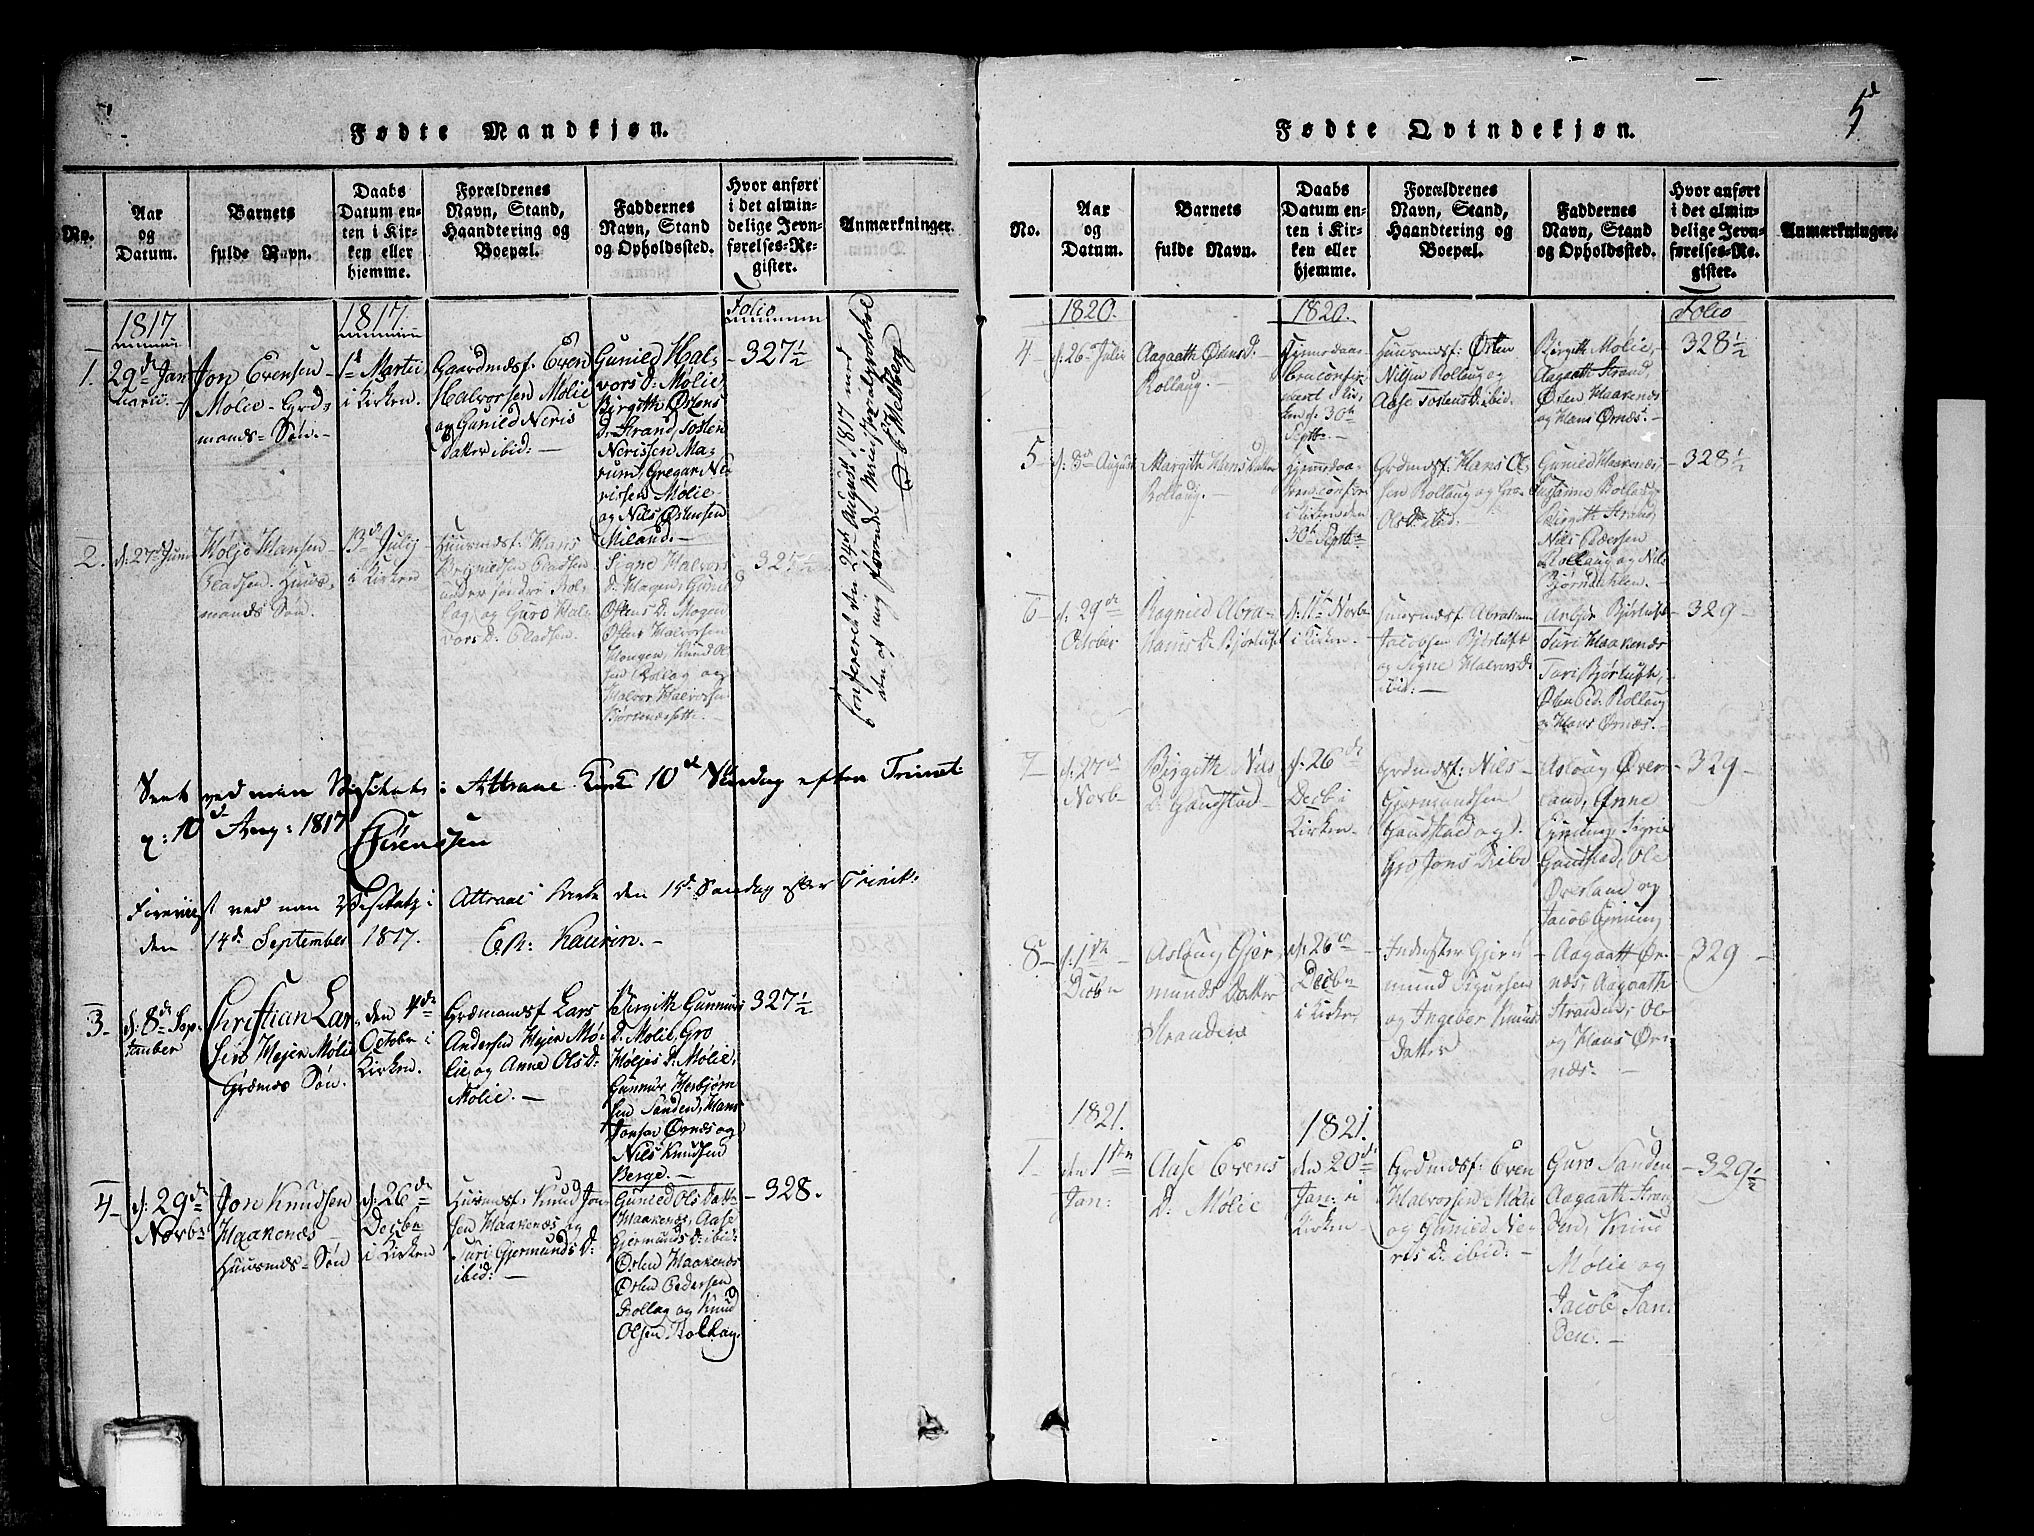 5d
Fødte Mandkjøn.
No.
Aar
og
Datum.
Barnets
fulde Navn.
Daabs
Datum en-
ten i Kir-
ken eller
hjemme.
Forældrenes
Navn, Stand,
Haandtering og
Boepæl.
Faddernes
Navn, Stand
og Opholdssted.
Hvor anført
i det almin-
delige Jevn-
førelses-Re-
gister.
Anmærkninger.
1817.
1817.
Folio
1.
29de Jan
uarii.
Jon Evensen
Molie. Grd-
mands-Søn.
1d Martii
i Kirken.
Gaardmdsf. Even
Halvorsen Mölie
og Gunild Neris
datter ibid:
Gunild Hal-
vors D. Mølie
Birgith Østens
D. Strand, Tosten
Nerissen Ma-
rum, Gregar Ne-
rissen Mølie
og Nils Østensen
Miland.
327½
Confereret den 24de August 1817 med
det af mig førende Ministerialprotokol
C. Wetberg
2.
d: 27de Juni
Hølje Hansen
Pladsen. Huus-
mands Søn.
13d July
i Kirken
Huusmdsf. Hans
Pladsen
under søndre Rol-
lag, og Guro Hal-
vors D. Pladsen.
Signe Halvors
D. Haagen, Gunild
Østens D. Mogen
Østen Halvorsen
Mongen, Knud Ol-
sen Rolag og
Halvor Halvorsen
Bjørtnæssett.
327½
Seet ved min Visitats i Attraae Kirke 10de Søndag efter Trinit:
d: 10d Aug: 1817
Sörenssen
Foreviist ved min Visitatz i Attraae Kirke den 15de Sondag efter Trinit:
den 14d September 1817. Kaurin.
3.
d: 8de Sep-
tember
Christian Lar-
sen Hejer Mølie
Grdmds Søn.
den 4de
Octobr i
Kirken.
Grdmandsf Lars
Andersen Hejer Mö-
lie, og Anne Ols D:
Molie.
Birgith Gunnurs
D: Molie, Gro
Høljes D: Mølie,
Gunnur Herbjørn
sen Sanden, Hans
Jonson Ørnæs og
Nils Knudsen
Berge.
327½
4
d: 29de
Novbr
Jon Knudsen
Haakenæs
Huusmds-Søn
d: 26de
Decbr
i Kirken
Huusmdsf. Knud Jon-
sen Haakenæs og
Turi Gjermunds D:
ibid:
Gunild Ols Dattr
Haakenæs, Aase
Gjermunds D: ibid:
Østen Haakenæs
Østen Pedersen
Rollag og Knud
Olsen Rollag.
328.
Fødte Qvindekjøn.
No.
Aar
og
Datum.
Barnets
fulde Navn.
Daabs
Datum en-
ten i Kir-
ken eller
hjemme.
Forældrenes
Navn, Stand,
Haandtering og
Boepæl.
Faddernes
Navn, Stand
og Opholdssted.
Hvor anført
i det almin-
delige Jevn-
førelses-Re-
gister.
Anmærkninger.
1820.
1820.
Folio
4
d. 26de Julii
Aagaath Østensd.
Rollaug.
hjemmedaab
confir-
meret i Kir-
ken d. 30te
Septbr.
Huusmdsf: Østen
Nilsen Rollaug og
Aase Tostens D: ibid.
Birgith Mølie,
Aagaath Strand,
Østen Haakenæs
og Hans Ørnæs.
328½
5
d: 3de August
Margith Hans Datter
Rollaug.
hjemmedaab
confir.
i Kirken den
30te Septbr
Grdmdsf: Hans Ol-
sen Rollaug og Gro
Ols D. ibid.
Gunild Haakenæs,
Susanne Rollaug,
Birgith Strand
Nils Pedersen
Rollaug og Nils
Bjørndahlen.
328½
6
d. 29de
October
Ragnild Abra-
hams D. Bjørtuft
d: 11te Novbr
i Kirken.
Huusmdsf. Abraham
Jacobsen Bjørtuft
og Signe Halvors D.
ibid:
Bjørtuft
Turi Haakenæs
Turi Bjørtuft,
Østen Ped. Rollaug
og Hans Ørnæs.
329
7
d: 27de
Novbr
Birgith Nils
D. Gaustad
d: 26de
Decbr i
Kirken.
Grdmdsf: Nils
Gjermundsen
Gaustad og
Gro Jons D: ibid
Aslaug Øver-
land, Anne
Grimmig, Sigrie
Gaustad, Ole
Øverland og
Jacob Grimmig
329
8
d. 1ste
Decbr
Aslaug Gjer-
munds Datter
Stranden
d: 26de
Decbr
i Kirken
Inderster Gjer-
mund Sigursen
og Ingebor Knuds
datter
Aagaatt Ør-
næs, Aagaath
Stranden, Ole
og Hans Ør-
næs.
329
1821.
1821.
1
den 1ste
Jan:
Aase Evens
D. Mølie
den 20de
Jan: i
Kirken
Grdmdsf: Even
Halvorsen Mølie
og Gunild Ne-
ris D: ibid:
Guro Sanden
Aagaath Stran-
den, Knud
Mølie og
Jacob San-
den.
329½